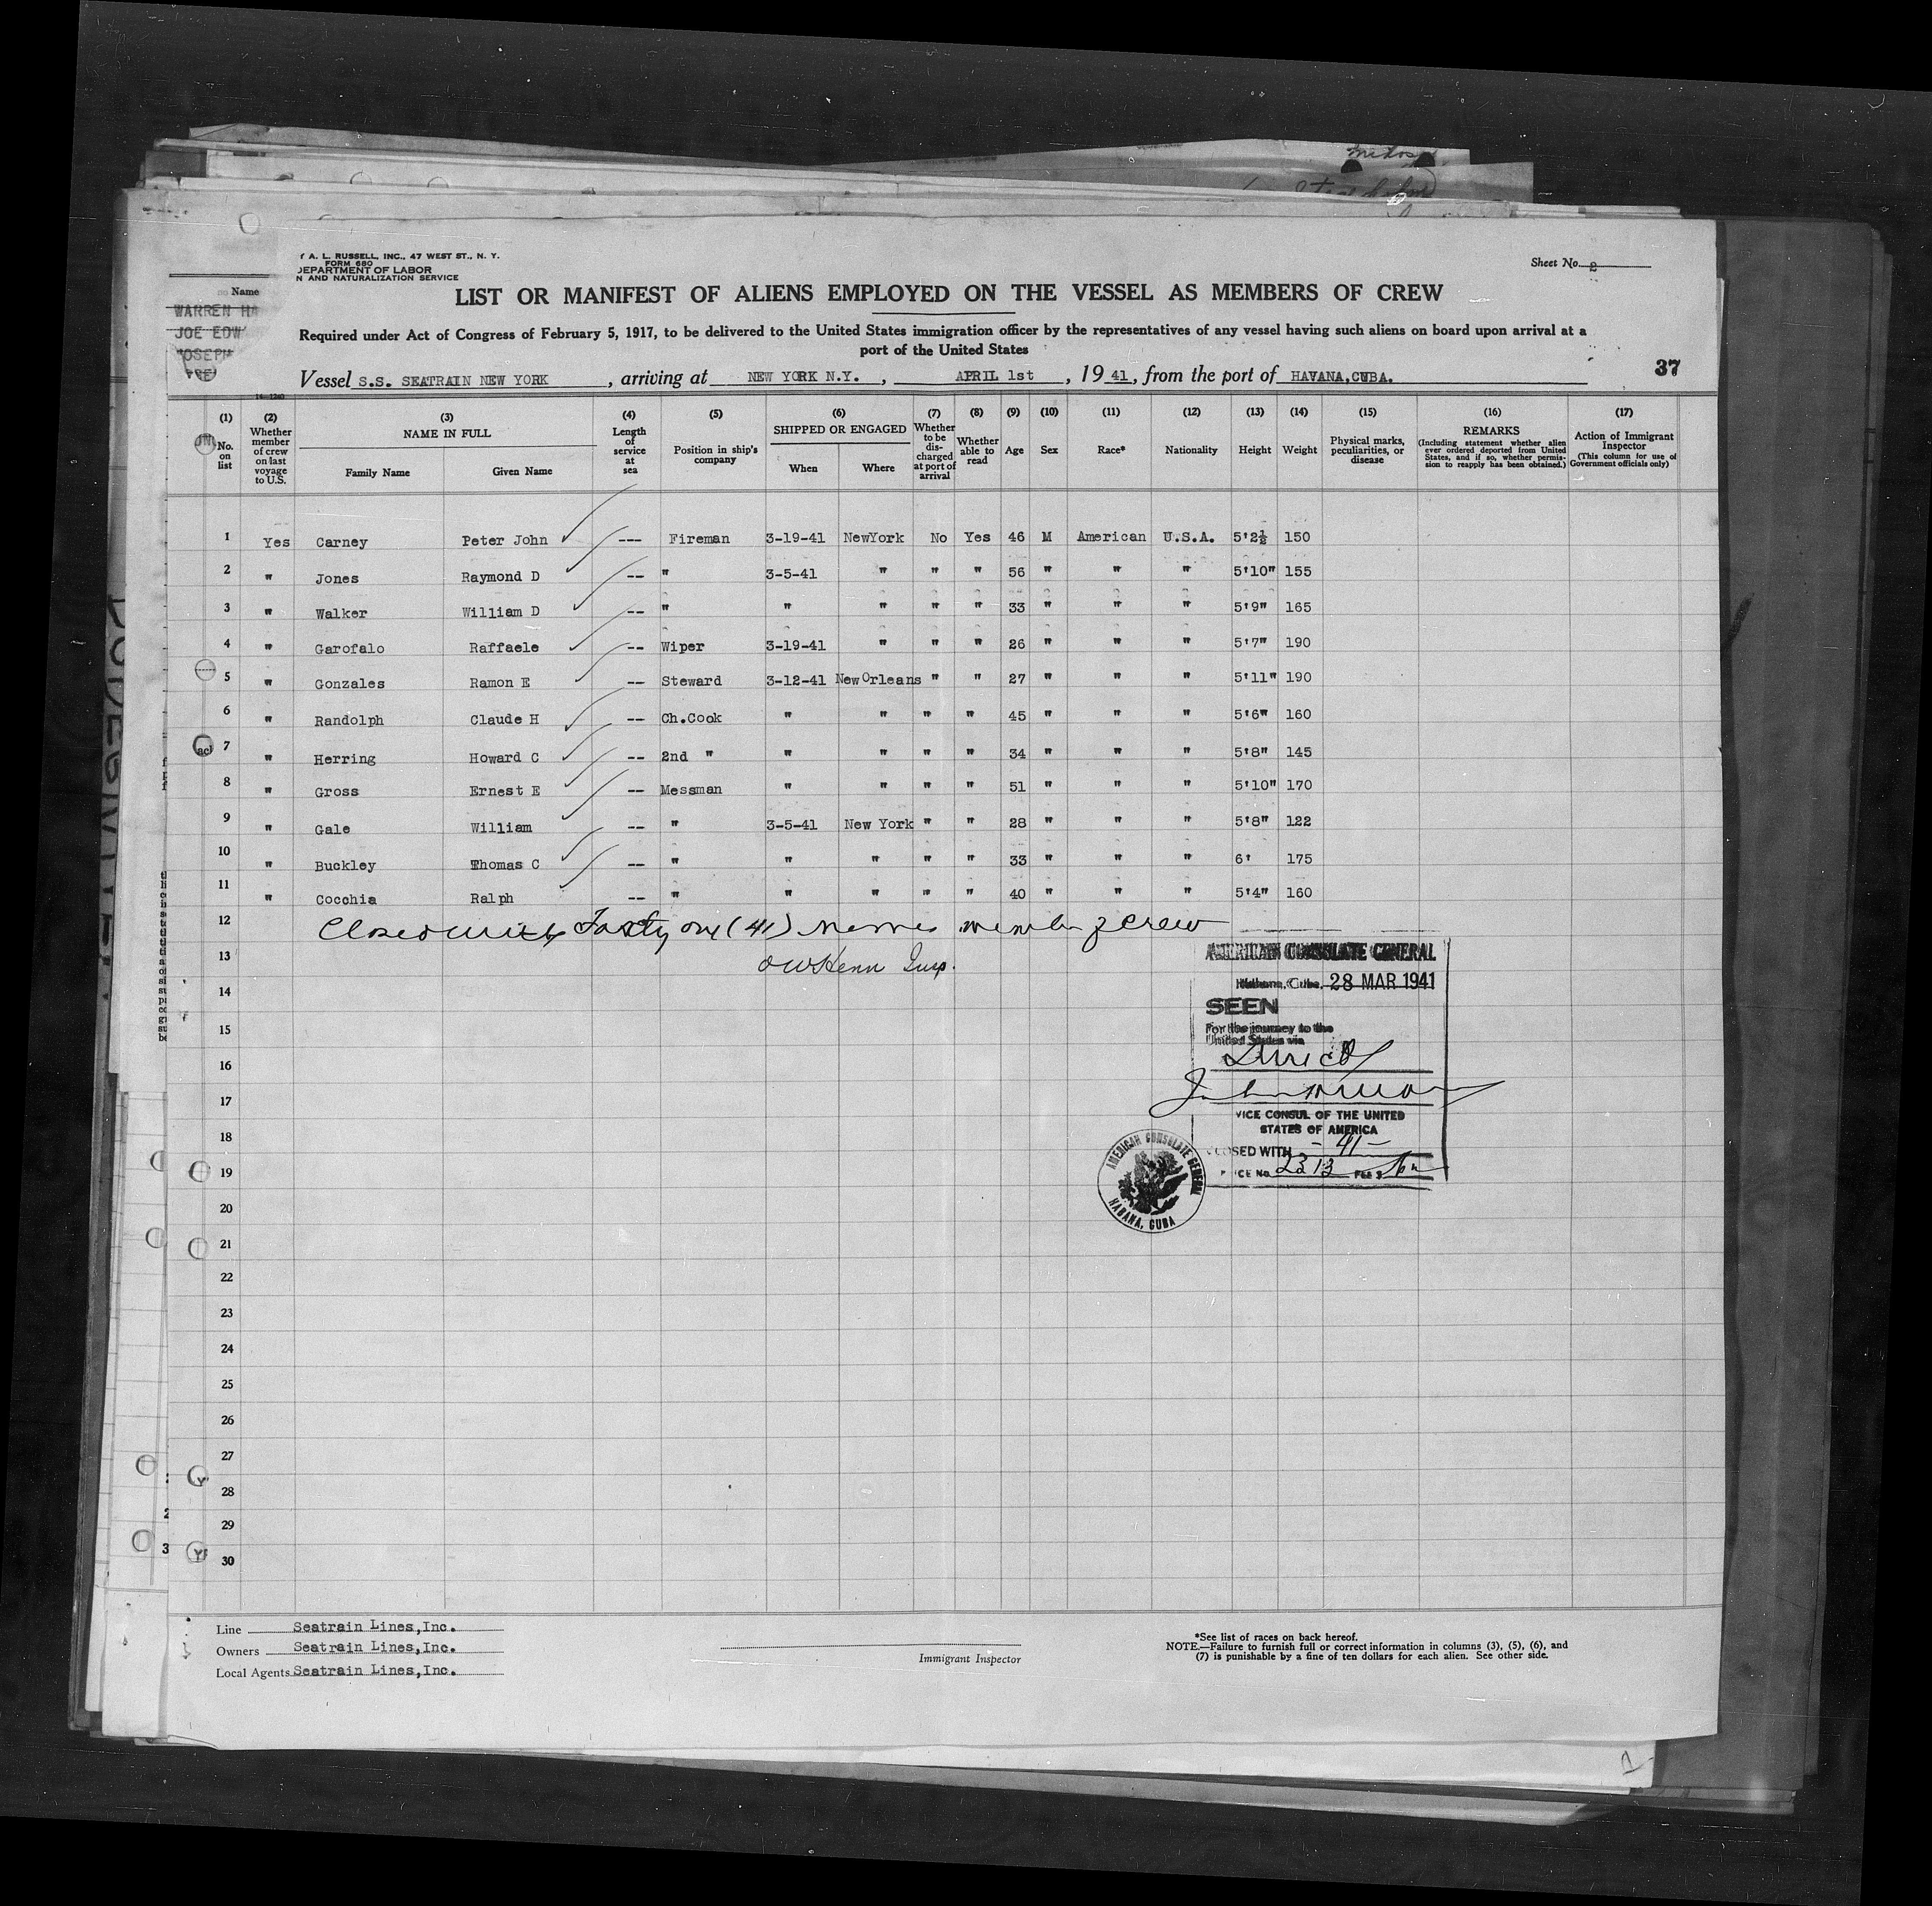 Y A. L. RUSSELL, INC., 47 WEST ST., N. Y.
FORM 680
DEPARTMENT OF LABOR
N AND NATURALIZATION SERVICE
Sheet No. 2
Name
WARREN HA
JOE EDW
JOSEPH
FRE
LIST OR MANIFEST OF ALIENS EMPLOYED ON THE VESSEL AS MEMBERS OF CREW
Required under Act of Congress of February 5, 1917, to be delivered to the United States immigration officer by the representatives of any vessel having such aliens on board upon arrival at a
port of the United States
37
Vessel S.S. SEATRAIN NEW YORK, arriving at NEW YORK N.Y., APRIL 1st, 19 41, from the port of HAVANA,CUBA.
(1) No. on list
(2) Whether member of crew on last voyage to U.S.
(3) NAME IN FULL Family Name Given Name
(4) Length of service at sea
(5) Position in ship's company
(6) SHIPPED OR ENGAGED When Where
(7) Whether to be discharged at port of arrival
(8) Whether able to read
(9) Age
(10) Sex
(11) Race*
(12) Nationality
(13) Height
(14) Weight
(15) Physical marks, peculiarities, or disease
(16) REMARKS (Including statement whether alien ever ordered deported from United States, and if so, whether permission to reapply has been obtained.)
(17) Action of Immigrant Inspector (This column for use of Government officials only)
1 Yes Carney Peter John --- Fireman 3-19-41 NewYork No Yes 46 M American U.S.A. 5'2½ 150
2 " Jones Raymond D -- " 3-5-41 " " " 56 " " " 5'10" 155
3 " Walker William D -- " " " " " 33 " " " 5'9" 165
4 " Garofalo Raffaele -- Wiper 3-19-41 " " " 26 " " " 5'7" 190
5 " Gonzales Ramon E -- Steward 3-12-41 New Orleans " " 27 " " " 5'11" 190
6 " Randolph Claude H -- Ch.Cook " " " " 45 " " " 5'6" 160
7 " Herring Howard C -- 2nd " " " " " 34 " " " 5'8" 145
8 " Gross Ernest E -- Messman " " " " 51 " " " 5'10" 170
9 " Gale William -- " 3-5-41 New York " " 28 " " " 5'8" 122
10 " Buckley Thomas C -- " " " " " 33 " " " 6' 175
11 " Cocchia Ralph -- " " " " " 40 " " " 5'4" 160
12 Closed with Forty one (41) names member of crew
13 Insp.
14
15
16
17
18
19
20
21
22
23
24
25
26
27
28
29
30
AMERICAN CONSULATE GENERAL
Habana, Cuba, 28 MAR 1941
SEEN
For the journey to the
United States via
Direct
VICE CONSUL OF THE UNITED
STATES OF AMERICA
CLOSED WITH -41-
ICE No. 2313 FEE $
AMERICAN CONSULATE GENERAL
HABANA, CUBA
Line Seatrain Lines,Inc.
Owners Seatrain Lines,Inc.
Local Agents Seatrain Lines,Inc.
Immigrant Inspector
*See list of races on back hereof.
NOTE.—Failure to furnish full or correct information in columns (3), (5), (6), and
(7) is punishable by a fine of ten dollars for each alien. See other side.